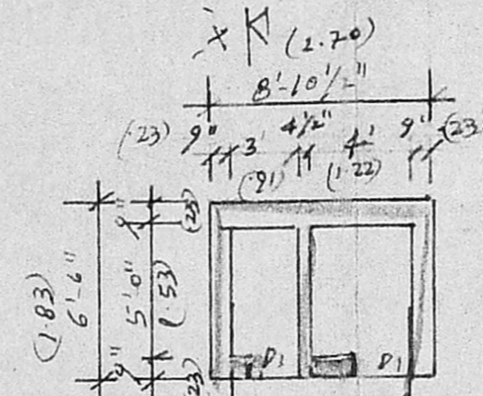 X (2.70)
8'-10½"
(.23) 9" 3' 4½" 4' 9" (.23)
(.91) (1.22)
9" (.23)
(1.83) 6'-6" 5'-0" (1.53)
9" (.23)
D1 D1